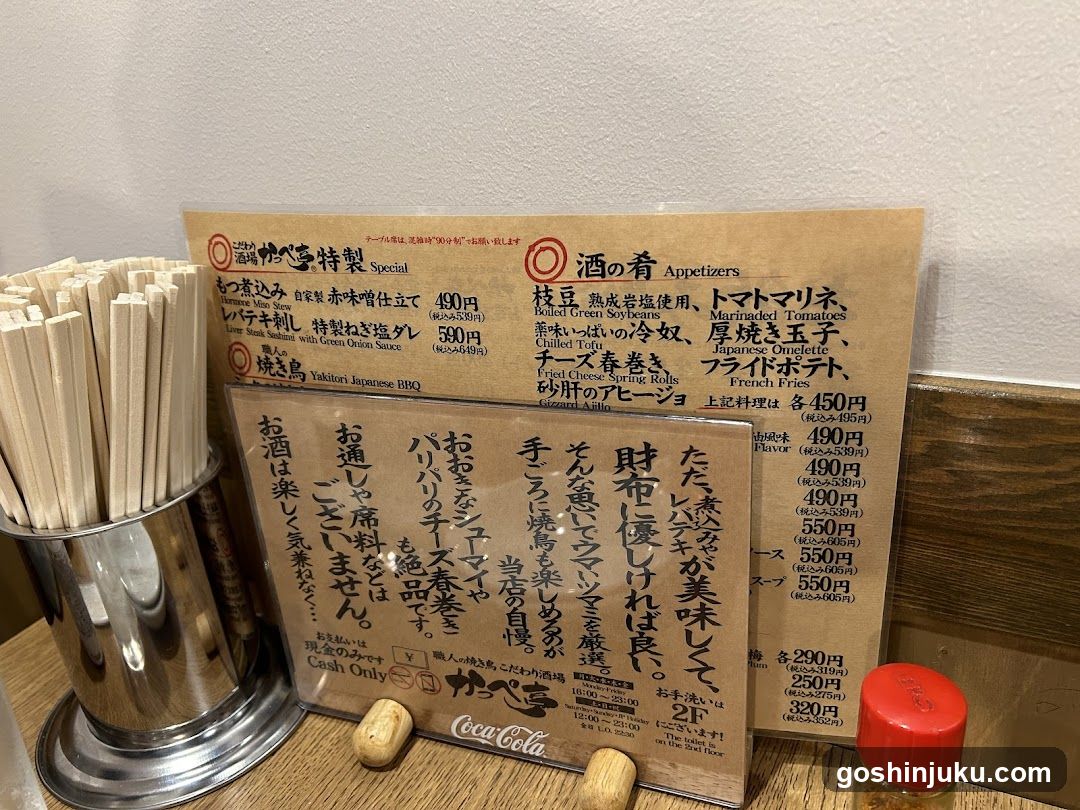 こだわり
酒場 かっぺ亭® 特製 Special
テーブル席は、混雑時“90分制”でお願い致します
もつ煮込み 自家製 赤味噌仕立て 490円
Hormone Miso Stew
(税込み539円)
レバテキ刺し 特製ねぎ塩ダレ 590円
Liver Steak Sashimi with Green Onion Sauce
(税込み649円)
職人の
焼き鳥 Yakitori Japanese BBQ
酒の肴 Appetizers
枝豆 熟成岩塩使用、トマトマリネ、
Boiled Green Soybeans
Marinaded Tomatoes
薬味いっぱいの冷奴、厚焼き玉子、
Chilled Tofu
Japanese Omelette
チーズ春巻き、フライドポテト、
Fried Cheese Spring Rolls
French Fries
砂肝のアヒージョ 上記料理は 各450円
Gizzard Ajillo
(税込み495円)
油風味 490円
Flavor
(税込み539円)
490円
(税込み539円)
490円
(税込み539円)
550円
(税込み605円)
ース 550円
(税込み605円)
スープ 550円
(税込み605円)
梅 各290円
Plum
(税込み319円)
250円
(税込み275円)
320円
(税込み352円)
ただ、煮込みや
レバテキが美味しくて、
財布に優しければ良い。
そんな思いでウマいツマミを厳選。
手ごろに焼鳥も楽しめるのが
当店の自慢。
おおきなシューマイや
パリパリのチーズ春巻き
も絶品です。
お通しや席料などは
ございません。
お酒は楽しく気兼ねなく…
お支払いは
現金のみです
Cash Only
¥
職人の焼き鳥 こだわり酒場
かっぺ亭
月・火・水・木・金
Monday-Friday
16:00～23:00
土・日・祝
Saturday・Sunday・JP Holiday
12:00～23:00
全日 L.O. 22:30
お手洗いは
2F
にございます!
The toilet is
on the 2nd floor
Coca-Cola
goshinjuku.com